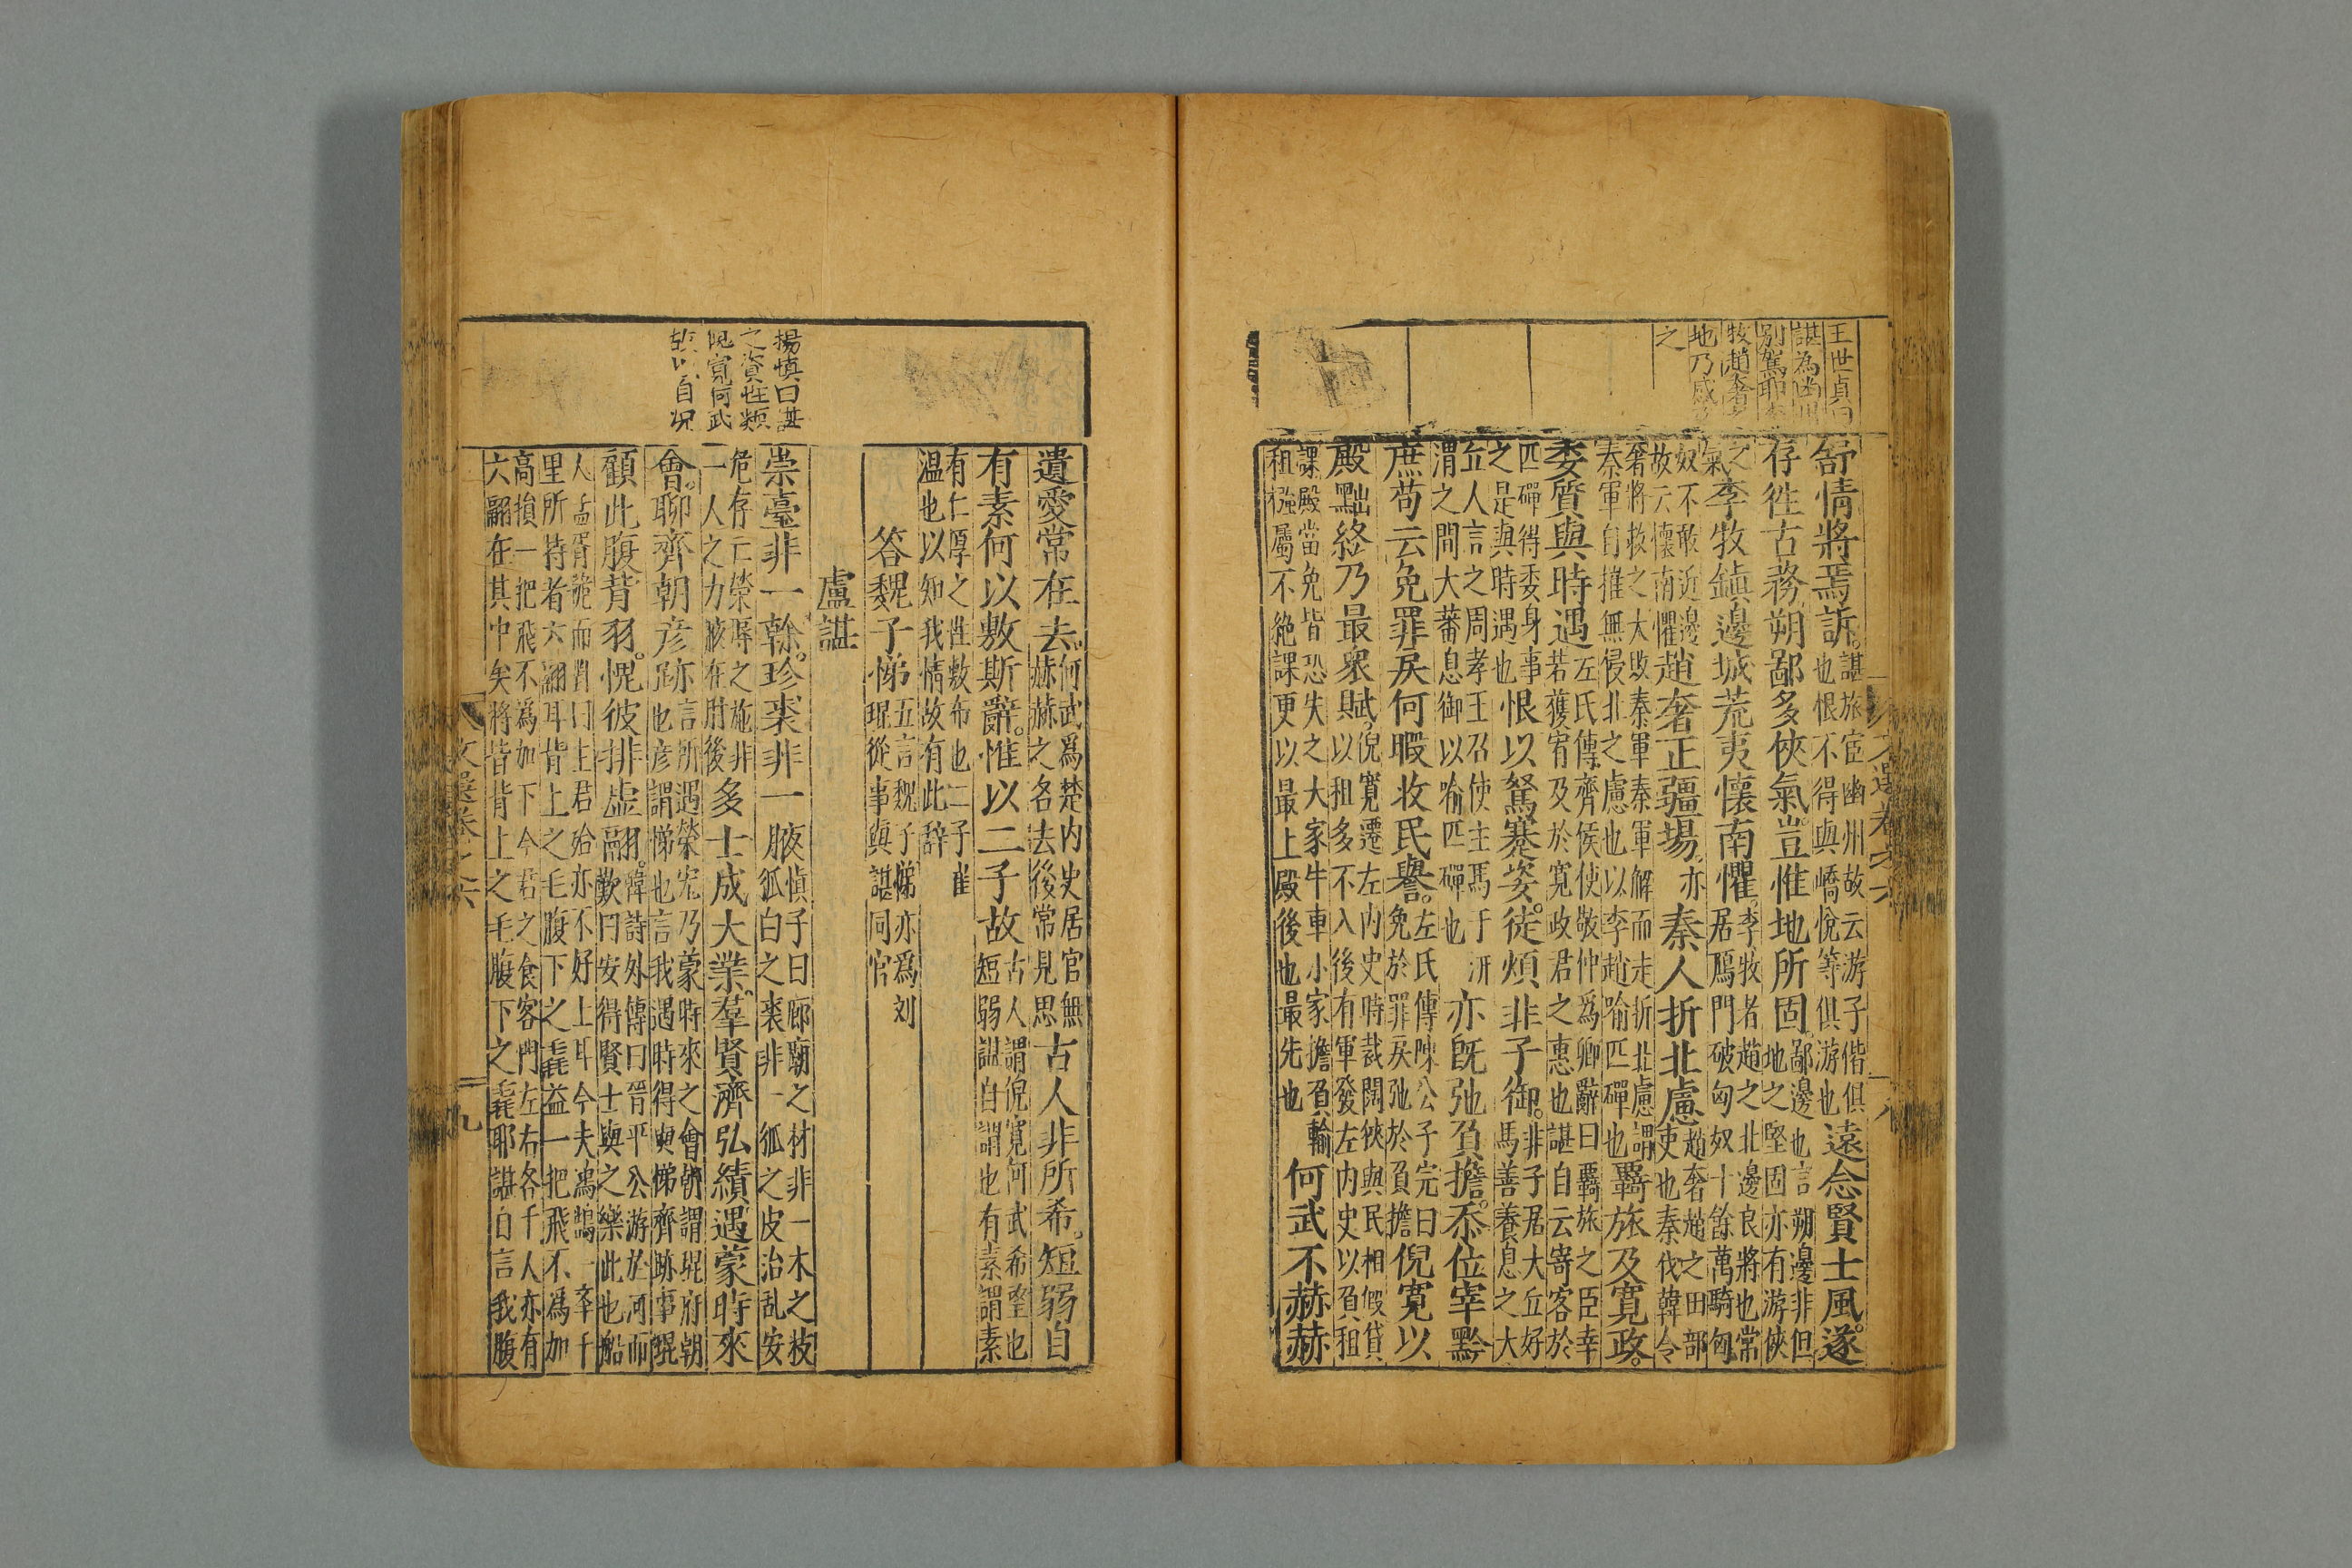 王世貞曰
諶為幽州
別駕耶李
牧趙奢之
地乃感
之
舒情將焉訴。
諶旅宦幽州故云游子偕俱
也恨不得與嶠悅等俱游也
遠念賢士風。遂
存徃古務朔鄙多俠氣豈惟地所固
鄙邊也言朔邊非但
地之堅固亦有游俠
之
氣
李牧鎮邊城荒夷懷南懼。
李牧者趙之北邊良將也常
居鴈門破匈奴十餘萬騎匈
奴不敢近邊
故云懷南懼
趙奢正疆場亦秦人折北慮
趙奢趙之田部
吏也秦伐韓令
奢將救之大敗秦軍秦軍解而走折北慮謂
秦軍自摧無侵北之慮也以李趙喻匹磾也
羇旅及寬政。
委質與時遇
左氏傳齊侯使敬仲爲卿辭曰羇旅之臣幸
若獲宥及於寬政君之惠也諶自云寄客於
匹磾得委身事
之是與時遇也
恨以駑蹇姿。徒煩非子御。
非子居大丘好
馬善養息之大
丘人言之周孝王召使主馬于汧
渭之間大蕃息御以喻匹磾也
亦旣弛負擔。忝位宰黔
庶苟云免罪戾何暇收民譽。
左氏傳陳公子完曰
免於罪戾弛於負擔
倪寬以
殿黜終乃最衆賦。
倪寬遷左内史時裁闊狹與民相假貸
以租多不入後有軍發左内史以負租
課殿當免皆恐失之大家牛車小家擔負輸
租襁屬不絶課更以最上殿後也最先也
何武不赫赫
文選卷之六
八
遺愛常在去。
何武爲楚内史居官無
赫赫之名去後常見思
古人非所希。短弱自
有素何以敷斯辭。惟以二子故
古人謂倪寬何武希望也
短弱諶自謂也有素謂素
有仁厚之性敷布也二子崔
温也以知我情故有此辞
答魏子悌
五言魏子悌亦爲刘
琨從事與諶同官
盧諶
楊慎曰諶
之資性類
倪寬何武
故以自况
崇臺非一幹。珍裘非一腋
慎子曰廊廟之材非一木之枝
狐白之裘非一狐之皮治乱安
危存亡榮辱之施非
一人之力腋在肘後
多士成大業。羣賢濟弘績。遇蒙時來
會。聊齊朝彦跡
言所遇榮宠乃蒙時來之會朝謂琨府朝
也彦謂悌也言我遇時得與悌齊跡事琨
顧此腹背羽。愧彼排虛翮。
韓詩外傳曰晉平公游於河而
歎曰安得賢士與之樂此也船
人孟胥跪而對曰主君殆亦不好士耳今夫鴻鵠一舉千
里所恃者六翮耳背上之毛腹下之毳益一把飛不爲加
高損一把飛不為加下今君之食客門左右各千人亦有
六翮在其中矣將皆背上之毛腹下之毳耶諶自言我腹
文選卷之六
九